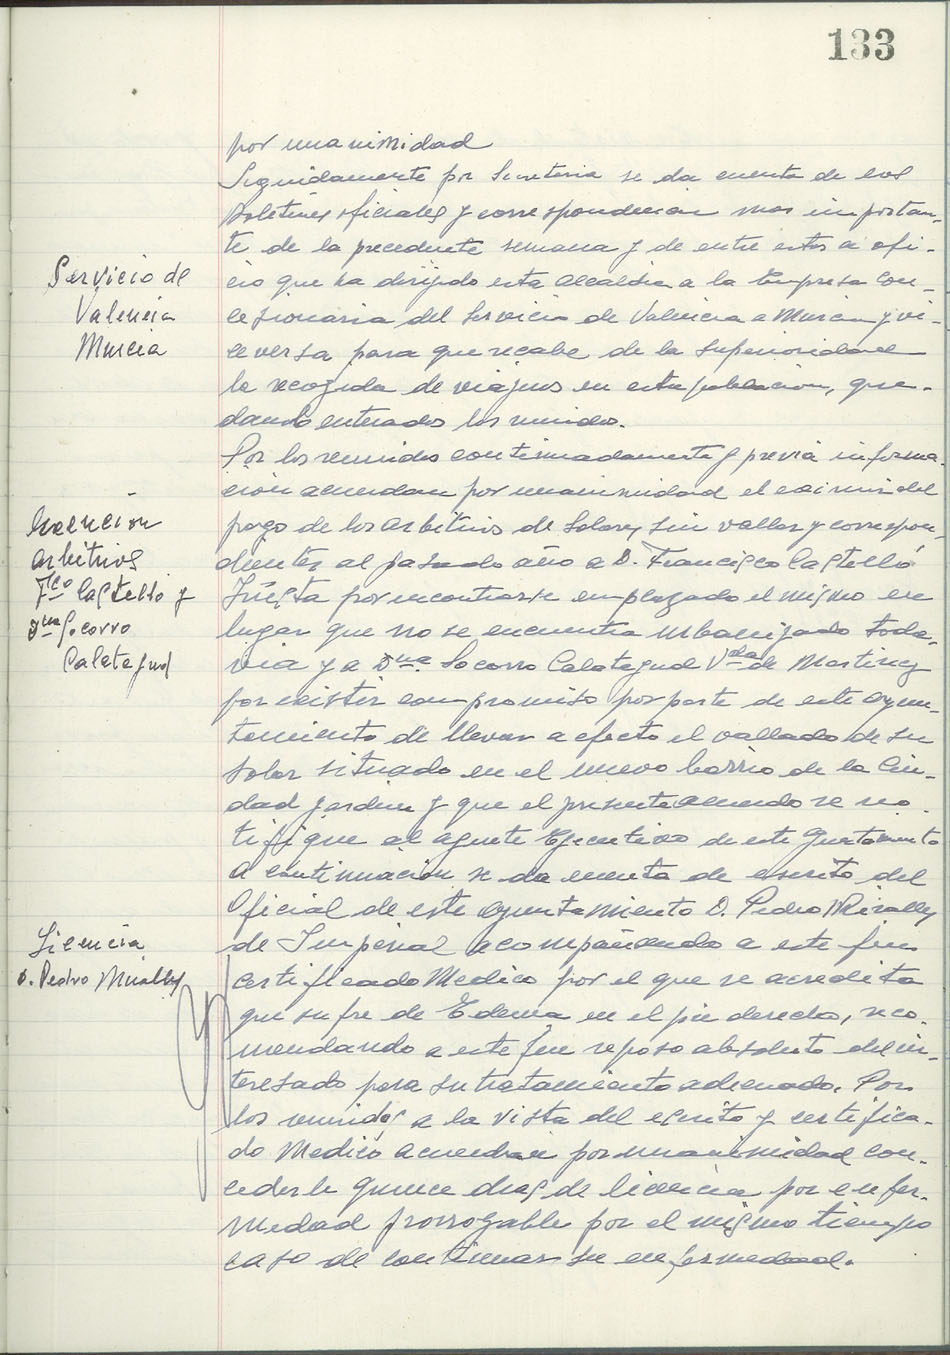 133
por unanimidad
Seguidamente por Secretaria se da cuenta de los
Boletines oficiales y correspondencia mas importan-
te de la precedente semana y de entre estos a ofi-
cio que ha dirijido esta Alcaldia a la Empresa con-
cesionaria del Servicio de Valencia a Murcia y vi-
ceversa para que recabe de la superioridad
la recogida de viajeros en esta poblacion, que-
dando enterados los reunidos.
Servicio de
Valencia
Murcia
Por los reunidos continuadamente y previa informa-
cion acuerdan por unanimidad el eximir del
pago de los arbitrios de Solares sin vallar y correspon-
dientes al pasado año a D. Francisco Castelló
Iñesta por encontrarse emplazado el mismo en
lugar que no se encuentra urbanizado toda-
via y a Dña Socorro Calatayud Vda de Martinez
por existir compromiso por parte de este Ayun-
tamiento de llevar a efecto el vallado de su
Solar situado en el nuevo barrio de la Ciu-
dad Jardin y que el presente acuerdo se no-
tifique al agente Ejecutivo de este Ayuntamiento
Exención
arbitrios
Fco Castelló y
Dña Socorro
Calatayud
A continuación se da cuenta de escrito del
Oficial de este Ayuntamiento D. Pedro Miralles
de Imperial acompañando a este fin
certificado Medico por el que se acredita
que sufre de Edema en el pie derecho, reco-
mendando a este fin reposo absoluto del in-
teresado para su tratamiento adecuado. Por
los reunidos a la vista del escrito y certifica-
do Medico acuerdan por unanimidad con-
cederle quince dias de licencia por enfer-
medad prorrogable por el mismo tiempo
caso de continuar su enfermedad.
Licencia
D. Pedro Miralles